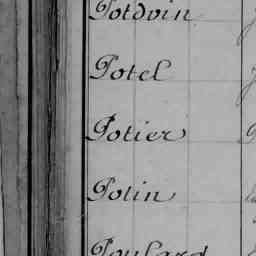 Potdvin
Potel
Potier
Potin
Poulard